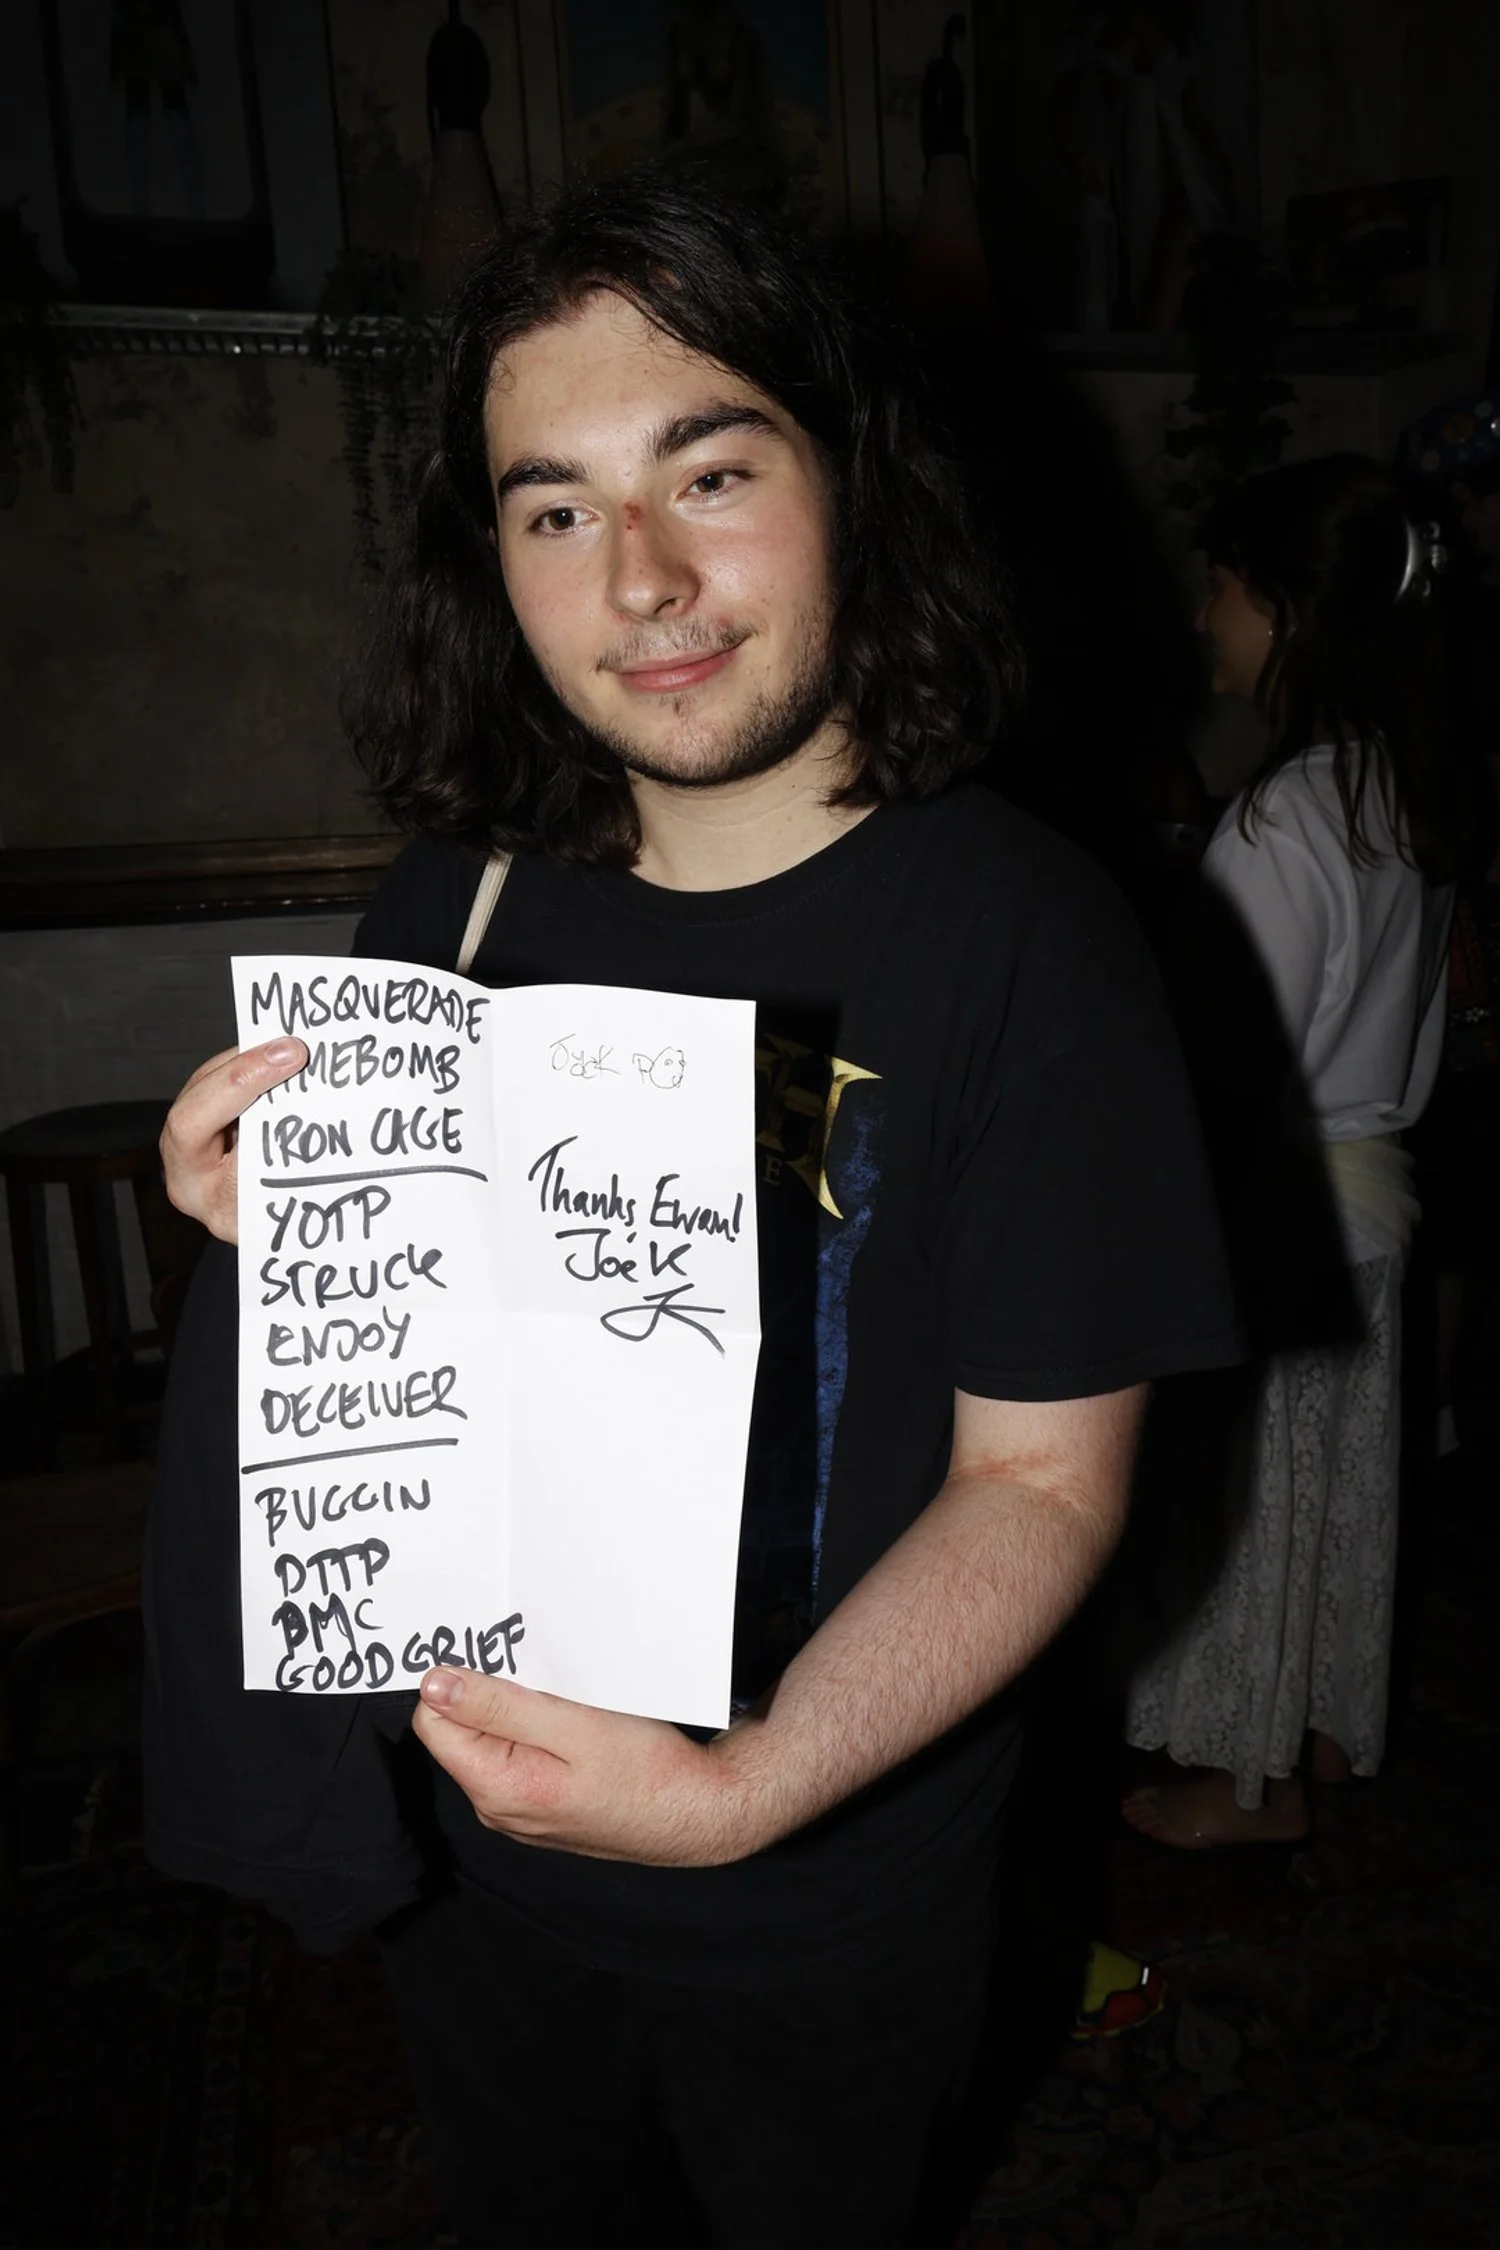 MASQUERADE
IMEBOMB
IRON CAGE
YOTP
STRUCK
ENJOY
DECEIVER
BUGGIN
DTTP
BMC
GOOD GRIEF
Thanks Ewan!
Joe K
JK
H
E